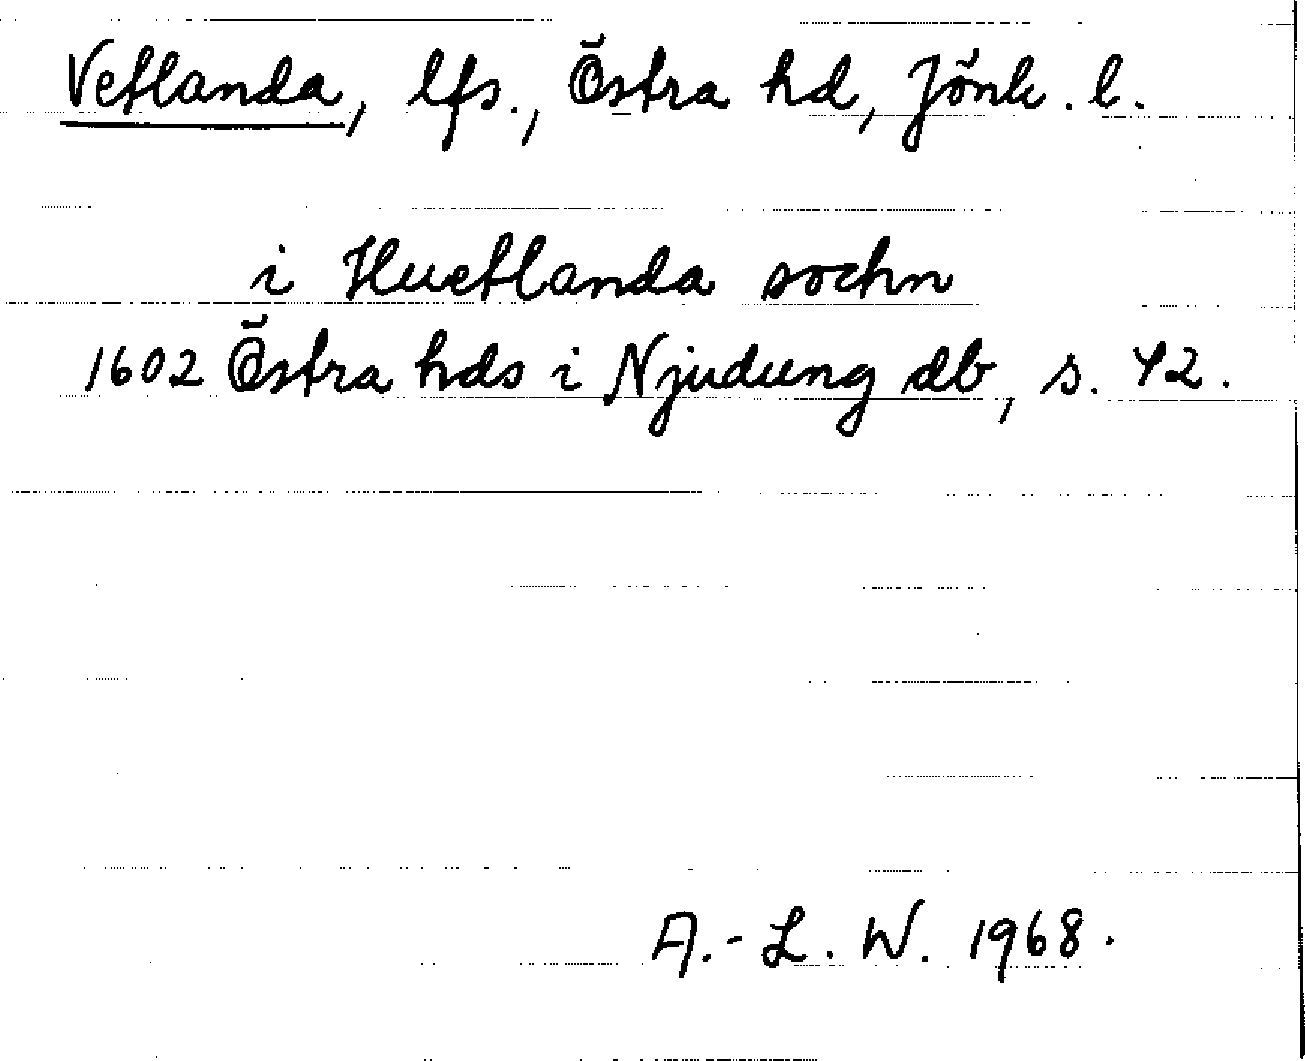 Vetlanda, lfs., Östra hd, Jönk. l.
i Huetlanda sochn
1602 Östra hds i Njudung db, s. 42.
A.-L. W. 1968.